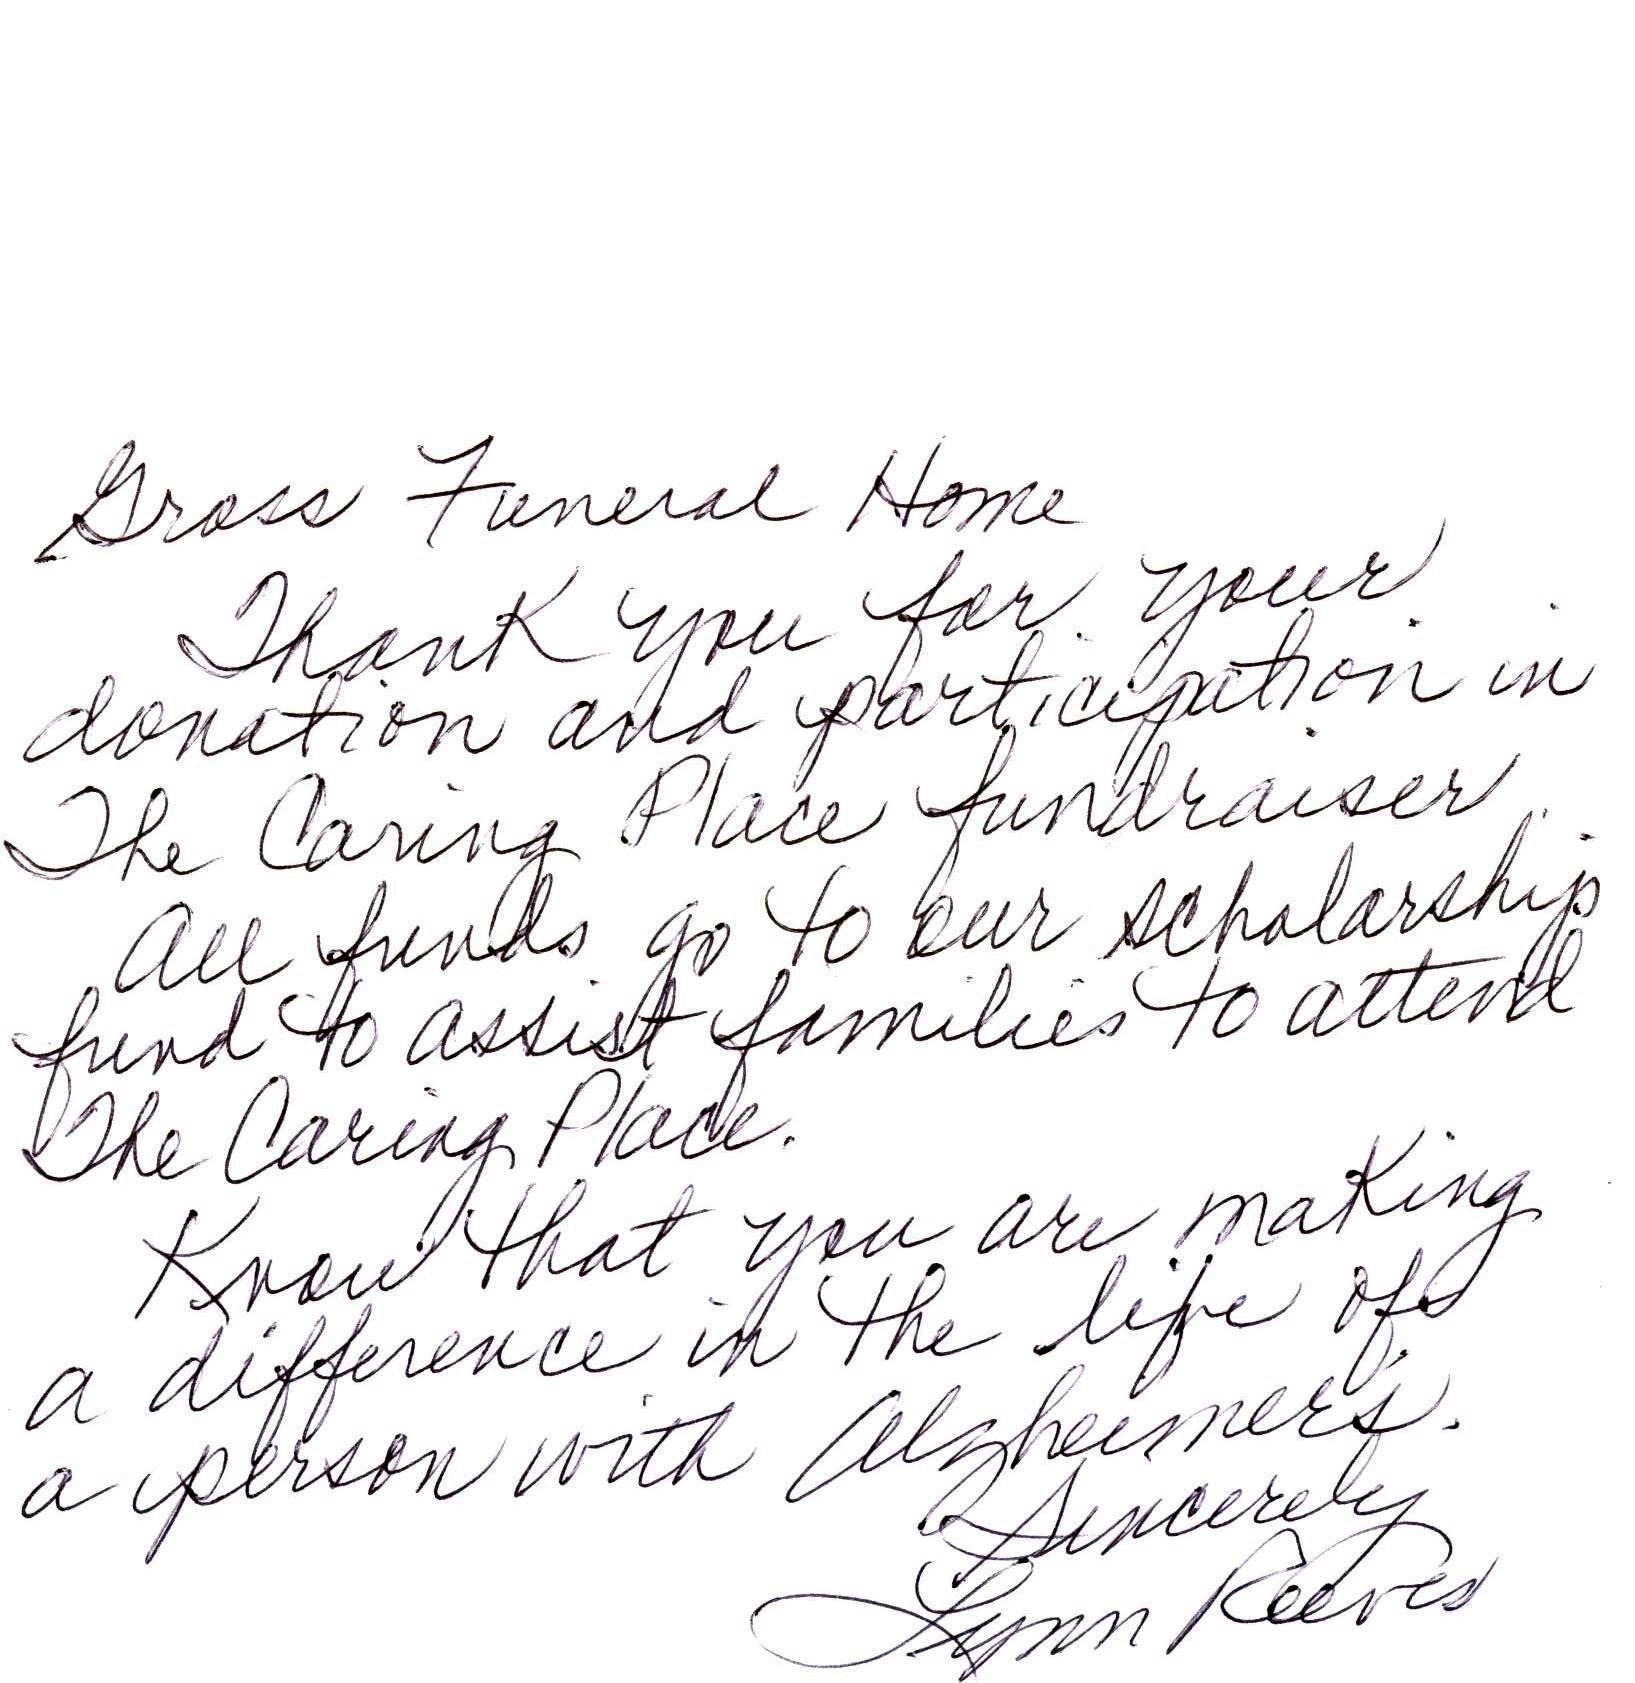 Gross Funeral Home
Thank you for your
donation and participation in
The Caring Place fundraiser.
All funds go to our scholarship
fund to assist families to attend
The Caring Place.
Know that you are making
a difference in the life of
a person with Alzheimers.
Sincerely
Lynn Reeves